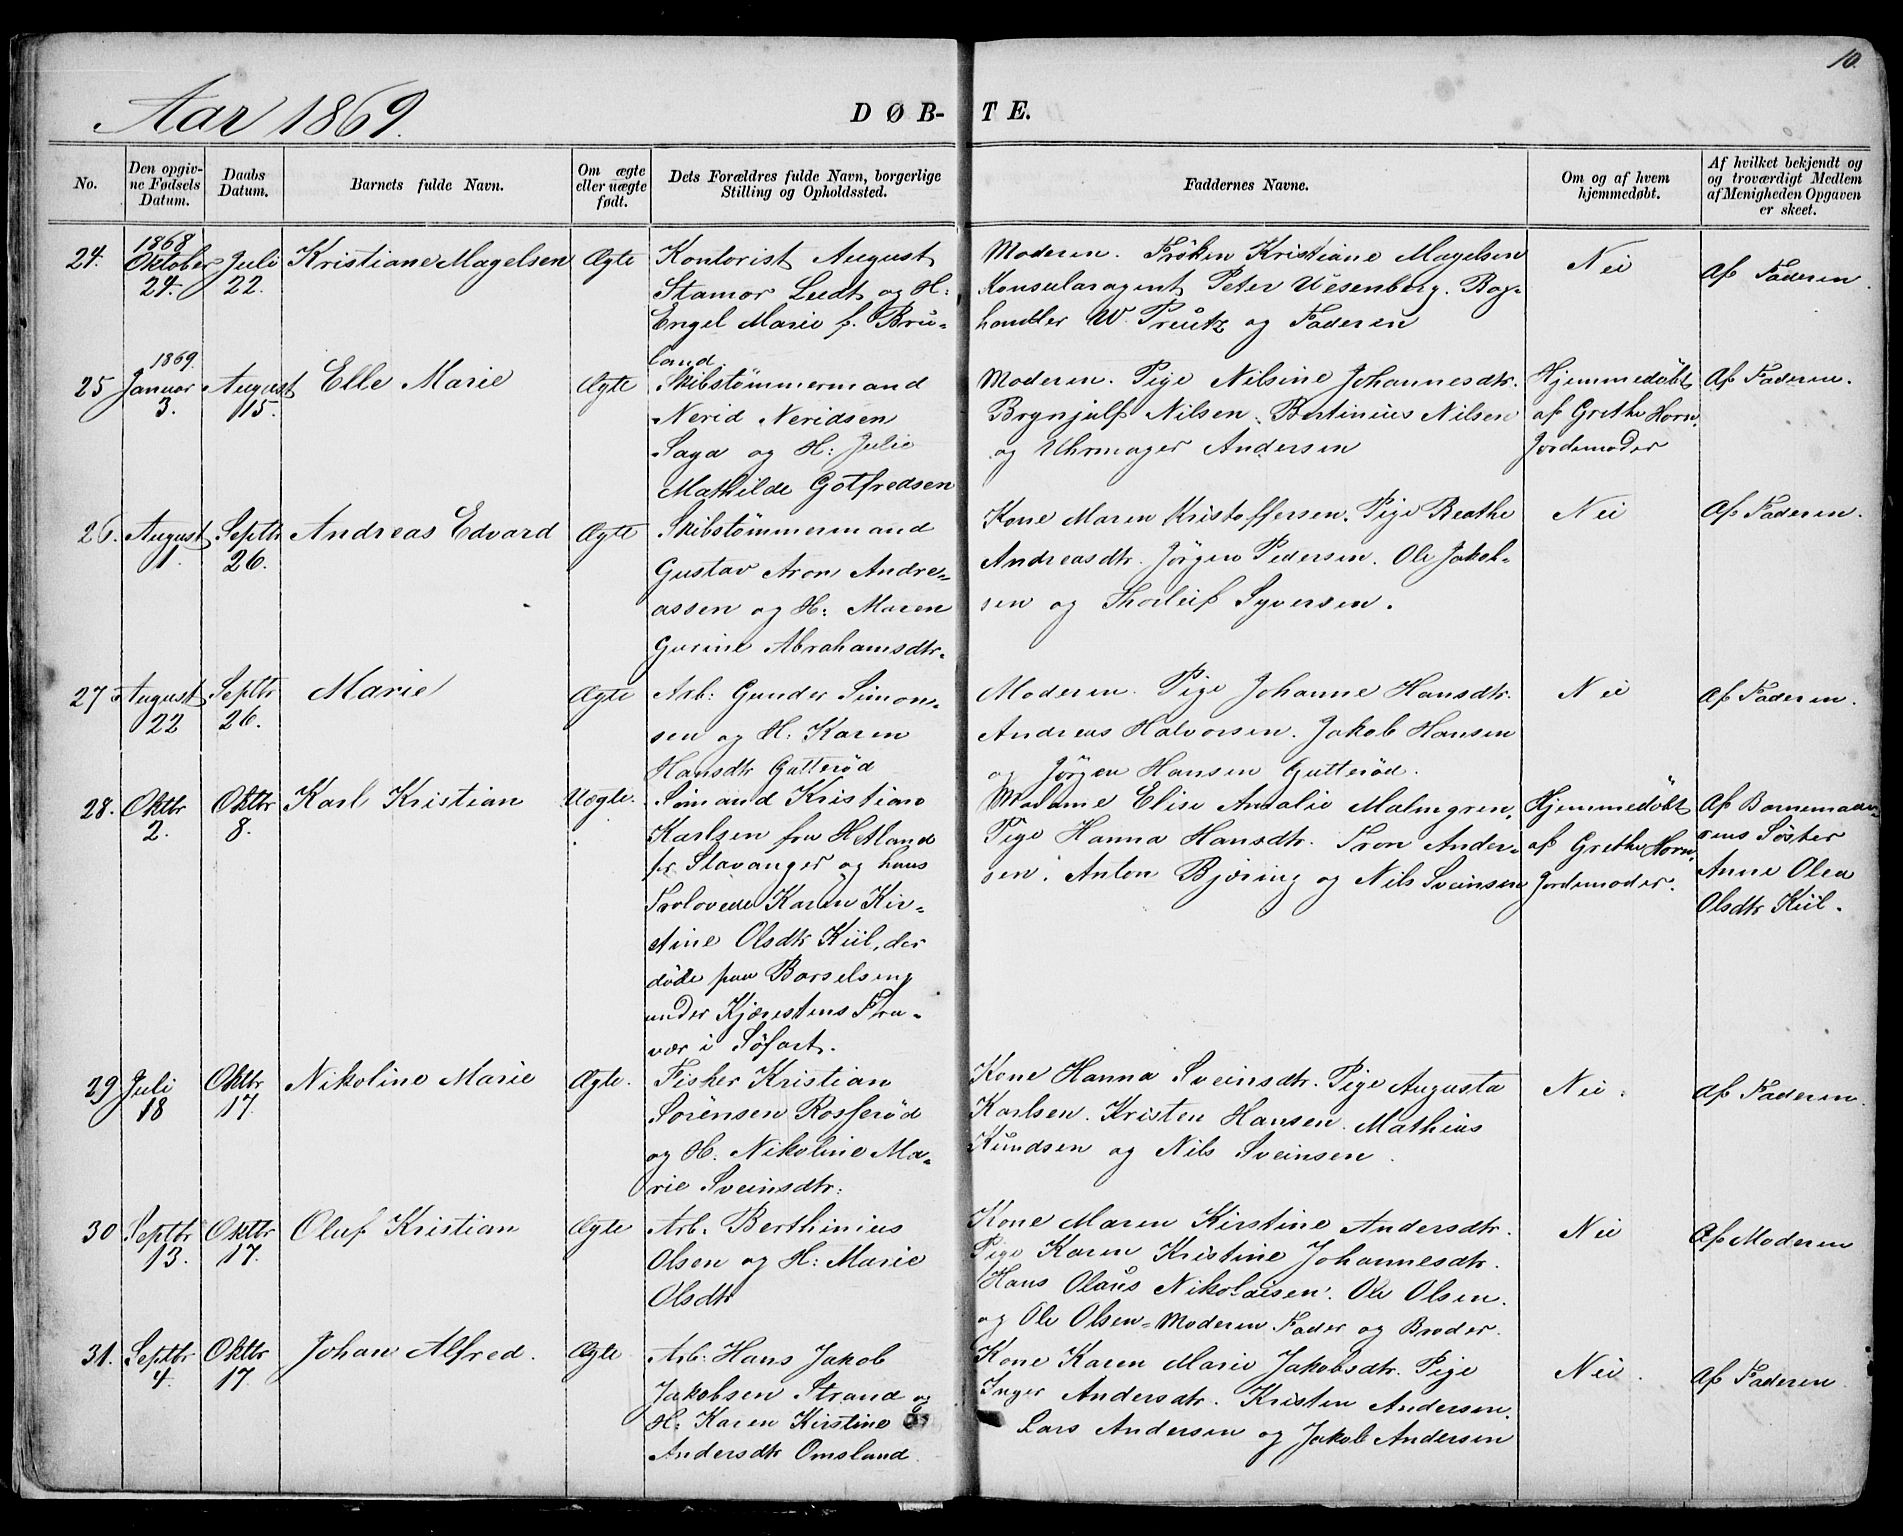 10.
Aar 1869.
DØB-TE.
No.
Den opgiv-
ne Fødsels
Datum.
Daabs
Datum.
Barnets fulde Navn.
Om ægte
eller uægte
født.
Dets Forældres fulde Navn, borgerlige
Stilling og Opholdssted.
Faddernes Navne.
Om og af hvem
hjemmedøbt.
Af hvilket bekjendt og
og troværdigt Medlem
af Menigheden Opgaven
er skeet.
24.
1868
Oktober
24.
Juli
22.
Kristiane Magelsen
Ægte
Kontorist August
Stamor Lndt og H:
Engel Marie f. Bru-
land.
Moderen. Frøken Kristiane Magelsen
Konsularagent Peter Uesenberg. Bog-
handler W. Preutz og Faderen
Nei
Af Faderen.
25
1869.
Januar
3.
August
15.
Elle Marie
Ægte
Skibstømmermand
Nerid Neridsen
Saga og H: Julie
Mathilde Gotfredsen
Moderen. Pige Nilsine Johannesdtr.
Brynjulf Nilsen. Bertinius Nilsen
og Uhrmager Andersen
Hjemmedøbt
af Grethe Horn,
Jordemoder
Af Faderen.
26.
August
1.
Septbr
26.
Andreas Edvard
Ægte
Skibstømmermand
Gustav Aron Andre-
assen og H: Maren
Gurine Abrahamsdtr.
Kone Maren Kristoffersen. Pige Beathe
Andreasdtr. Jørgen Pedersen. Ole Jakob-
sen og Thorleif Syversen.
Nei
Af Faderen.
27
August
22
Septbr
26.
Marie
Ægte
Arb: Gunder Simon-
sen og H. Karen
Hansdtr Gutterød
Moderen. Pige Johanne Hansdtr.
Andreas Halvorsen. Jakob Hansen
og Jørgen Hansen Gutterød.
Nei
Af Faderen.
28.
Oktbr
2.
Oktbr
8.
Karl Kristian
Uægte.
Sømand Kristian
Karlsen fra Hetland
pr Stavanger og hans
Forlovede Karen Kir-
stine Olsdtr Kiil, der
døde paa Barselseng
under Kjærestens Fra-
vær i Søfart.
Madame Elise Amalie Malmgren,
Pige Hanna Hansdtr. Tron Ander-
sen. Anton Bjering og Nils Sveinsen
Hjemmedøbt
af Grethe Horn,
Jordemoder.
Af Barnemode-
rens Søster
Anne Olea
Olsdtr Kiil.
29.
Juli
18
Oktbr
17.
Nikoline Marie
Ægte.
Fisker Kristian
Sørensen Rosferød
og H. Nikoline Ma-
rie Sveinsdtr:
Kone Hanna Sveinsdtr. Pige Augusta
Karlsen. Kristen Hansen. Mathius
Knudsen og Nils Sveinsen.
Nei.
Af Faderen.
30
Septbr
13.
Oktbr
17.
Oluf Kristian
Ægte
Arb. Berthinius
Olsen og H: Marie
Olsdtr
Kone Maren Kirstine Andersdtr.
Pige Karen Kristine Johannesdtr.
Hans Olaus Nikolaisen. Ole Olsen.
og Ole Olsen = Moderen Fader og Broder.
Nei
Af Moderen
31.
Septbr
4.
Oktbr
17.
Johan Alfred.
Ægte
Arb: Hans Jakob
Jakobsen Strand og
H: Karen Kirstine
Andersdtr Omsland.
Kone Karen Marie Jakobsdtr. Pige
Inger Andersdtr. Kristen Andersen.
Lars Andersen og Jakob Andersen
Nei.
Af Faderen